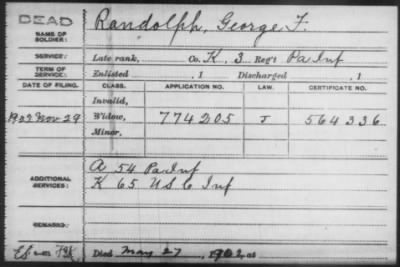 DEAD
NAME OF SOLDIER: Randolph, George F.
SERVICE: Late rank, Co. K, 3 Reg't Pa Inf
TERM OF SERVICE: Enlisted , 1 Discharged , 1
DATE OF FILING. CLASS. APPLICATION NO. LAW. CERTIFICATE NO.
Invalid,
1902 Nov 29 Widow, 774205 J 564336
Minor,
ADDITIONAL SERVICES: A 54 Pa Inf
K 65 U S C Inf
REMARKS:
Died May 27, 1902, at